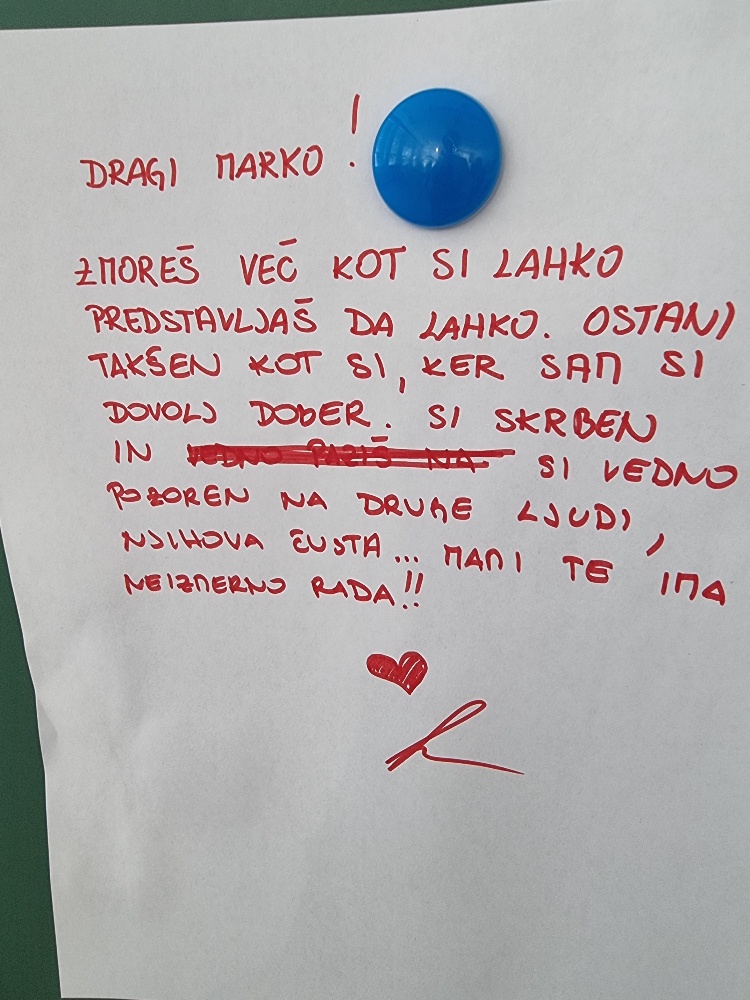 DRAGI MARKO!
ZMOREŠ VEČ KOT SI LAHKO
PREDSTAVLJAŠ DA LAHKO. OSTANI
TAKŠEN KOT SI, KER SAM SI
DOVOLJ DOBER. SI SKRBEN
IN VEDNO PAZIŠ NA SI VEDNO
POZOREN NA DRUGE LJUDI,
NJIHOVA ČUSTA... MAMI TE IMA
NEIZMERNO RADA!!